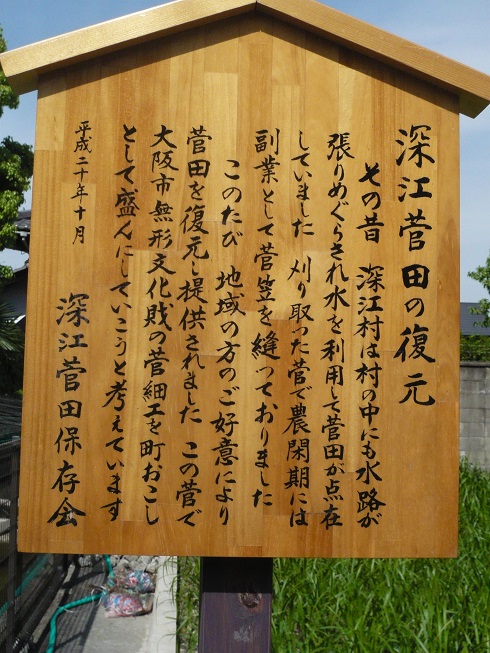 深江菅田の復元
その昔 深江村は村の中にも水路が
張りめぐらされ水を利用して菅田が点在
していました 刈り取った菅で農閑期には
副業として菅笠を縫っておりました
このたび 地域の方のご好意により
菅田を復元し提供されました この菅で
大阪市無形文化財の菅細工を町おこし
として盛んにしていこうと考えています
平成二十年十月
深江菅田保存会